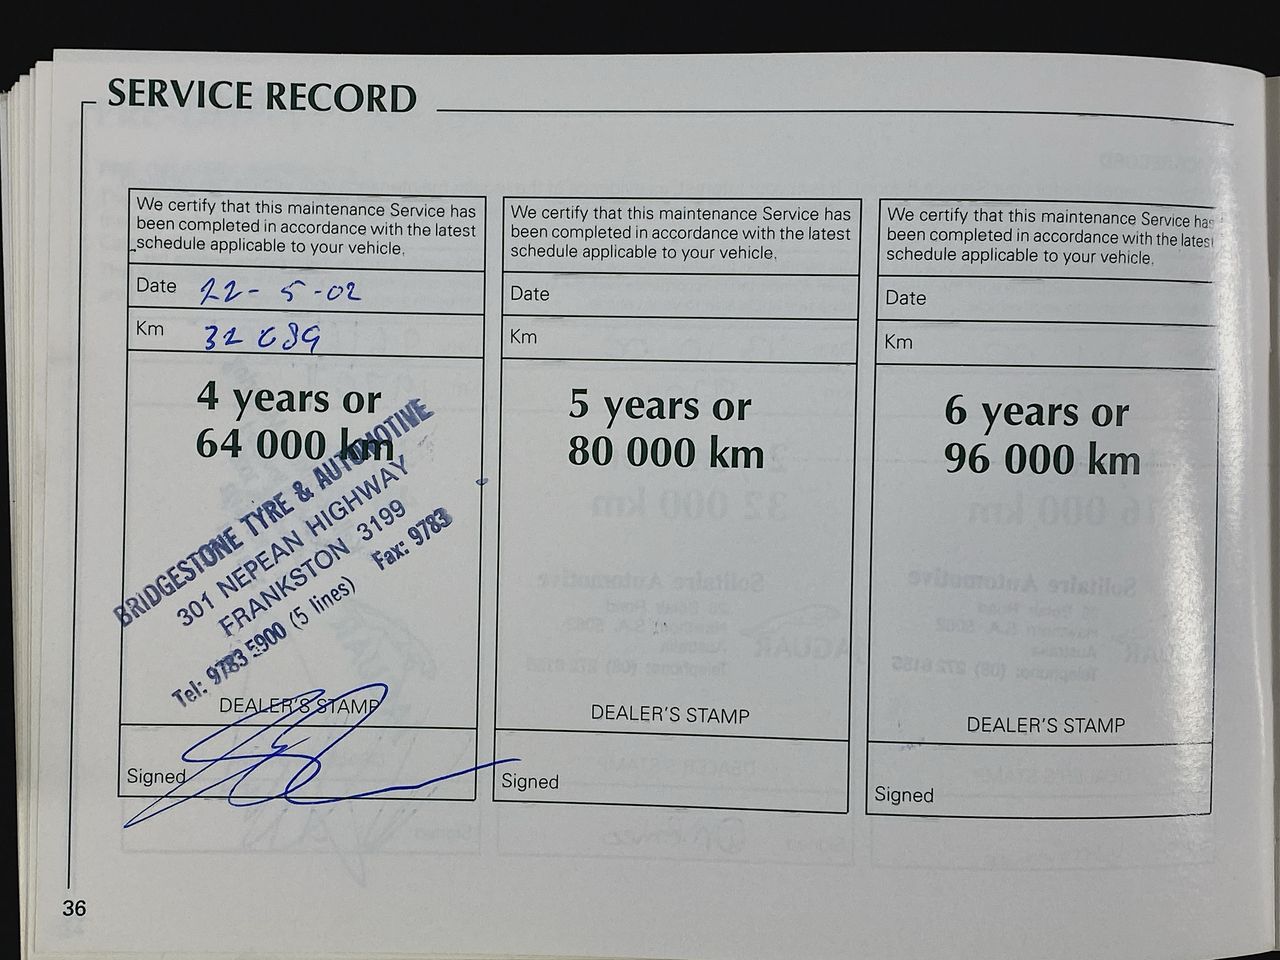 SERVICE RECORD
We certify that this maintenance Service has
been completed in accordance with the latest
schedule applicable to your vehicle.
Date 22-5-02
Km 32 689
4 years or
64 000 km
BRIDGESTONE TYRE & AUTOMOTIVE
301 NEPEAN HIGHWAY
FRANKSTON 3199
Tel: 9783 5900 (5 lines) Fax: 9783
DEALER'S STAMP
Signed
We certify that this maintenance Service has
been completed in accordance with the latest
schedule applicable to your vehicle.
Date
Km
5 years or
80 000 km
DEALER'S STAMP
Signed
We certify that this maintenance Service has
been completed in accordance with the latest
schedule applicable to your vehicle.
Date
Km
6 years or
96 000 km
DEALER'S STAMP
Signed
36